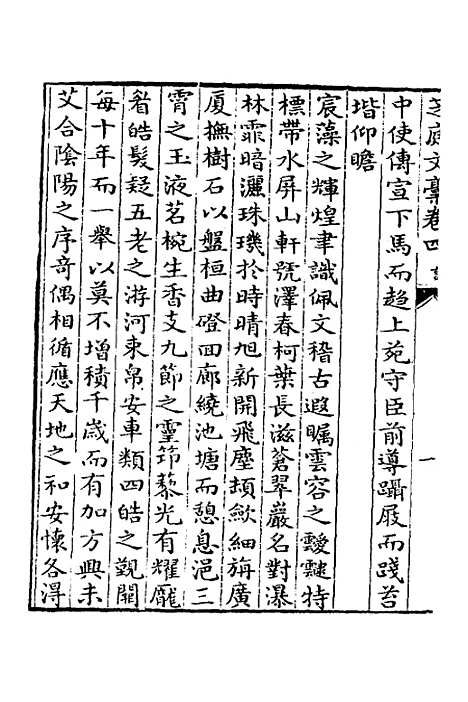 芝庭文藁卷四 記
一
中使傳宣下馬而趨上苑守臣前導躡屐而踐苔
堦仰瞻
宸藻之輝煌聿識佩文稽古遐矚雲容之靉靆特
標帶水屏山軒號澤春柯葉長滋蒼翠巖名對瀑
林霏暗灑珠璣於時晴旭新開飛塵頓歛細旃廣
厦撫樹石以盤桓曲磴回廊繞池塘而憩息浥三
霄之玉液茗椀生香支九節之靈筇藜光有耀龐
眉皓髮疑五老之游河束帛安車類四皓之覲闕
每十年而一舉以莫不增積千歲而有加方興未
艾合陰陽之序竒偶相循應天地之和安懷各得